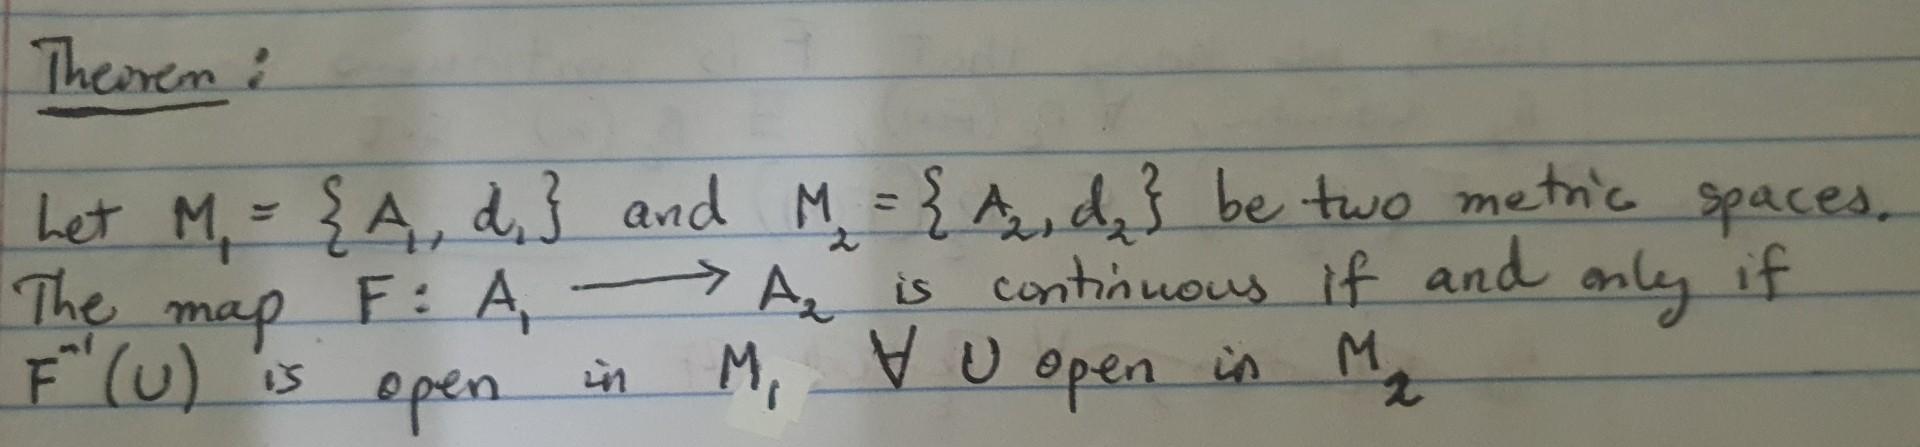 Theorem :
Let M₁ = { A₁, d₁} and M₂ = { A₂, d₂} be two metric spaces.
The map F : A₁ ⟶ A₂ is continuous if and only if
F⁻¹(U) is open in M₁ ∀ U open in M₂